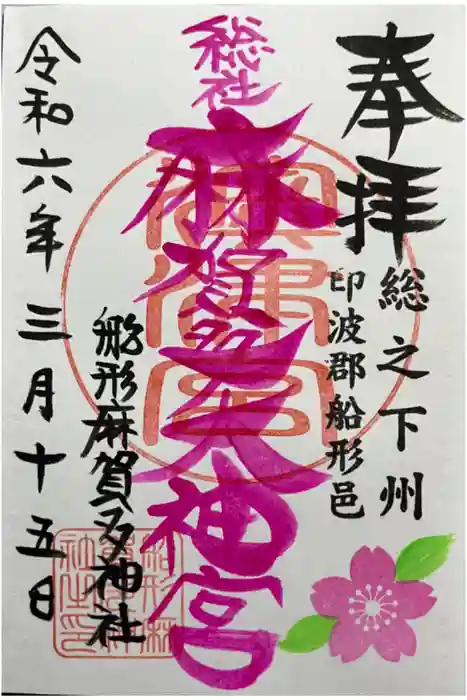 奉拝
総之下州
印波郡船形邑
総社
麻賀多大神宮
船形麻賀多神社
令和六年三月十五日